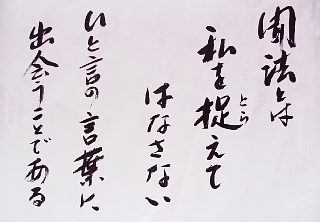 聞法とは
私を捉えて
とら
はなさない
ひと言の言葉に
出会うことである